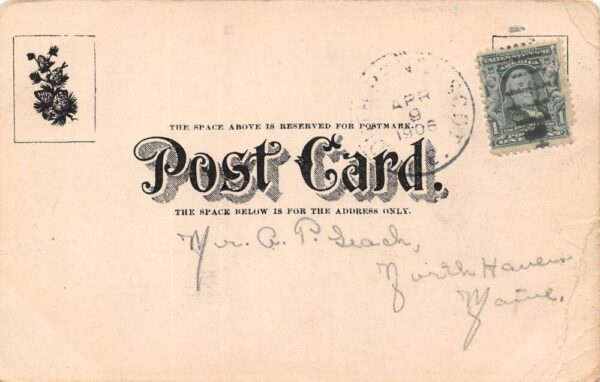 APR
9
1906
AMERICA
1 1
THE SPACE ABOVE IS RESERVED FOR POSTMARK.
Post Card.
THE SPACE BELOW IS FOR THE ADDRESS ONLY.
Mr. A. P. Leach,
North Haven
Maine.